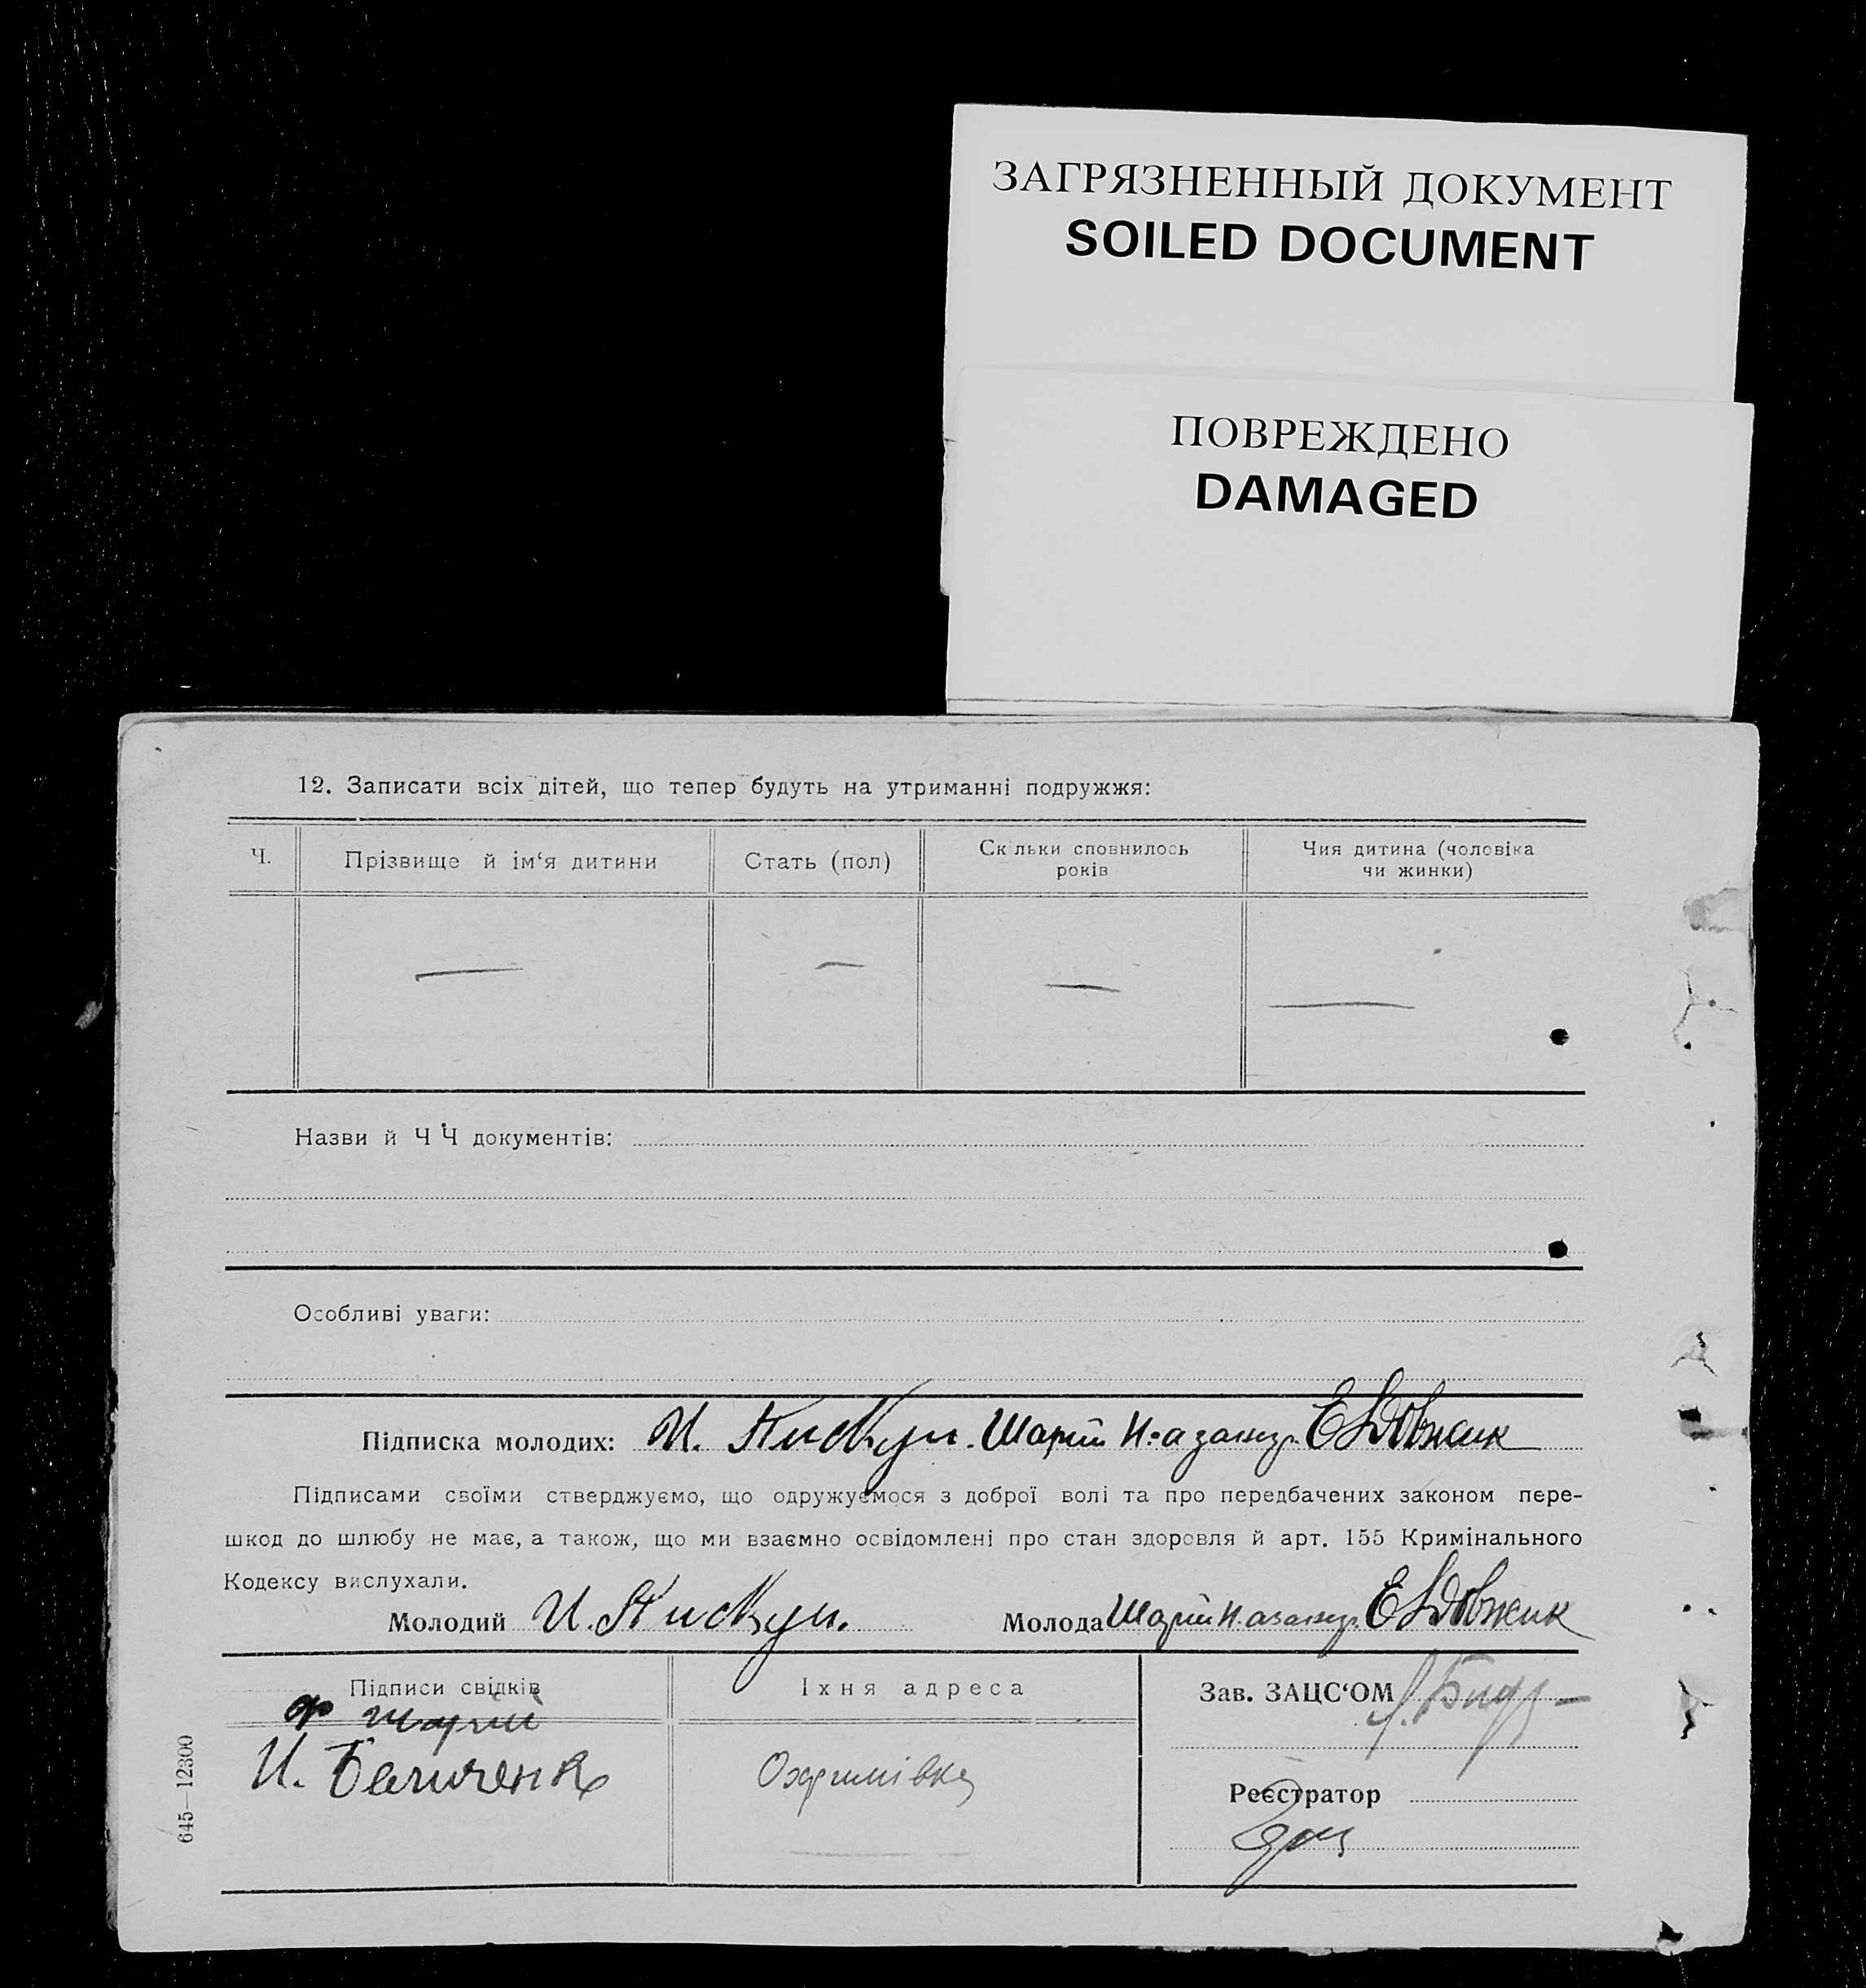 ЗАГРЯЗНЕННЫЙ ДОКУМЕНТ
SOILED DOCUMENT
ПОВРЕЖДЕНО
DAMAGED
12. Записати всіх дітей, що тепер будуть на утриманні подружжя:
Ч.
Прізвище й ім‘я дитини
Стать (пол)
Скільки сповнилось
років
Чия дитина (чоловіка
чи жинки)
Назви й ЧЧ документів:
Особливі уваги:
Підписка молодих: И. Пискун. Шарій Н:а Е Довжик
Підписами своїми стверджуємо, що одружуємося з доброї волі та про передбачених законом пере-
шкод до шлюбу не має, а також, що ми взаємно освідомлені про стан здоровля й арт. 155 Кримінального
Кодексу вислухали.
Молодий И. Пискун.
Молода Шарій Е Довжик
Підписи свідків
Шарій
И. Величенко
Їхня адреса
Охримівка
Зав. ЗАЦС‘ОМ
Реєстратор
645—12300